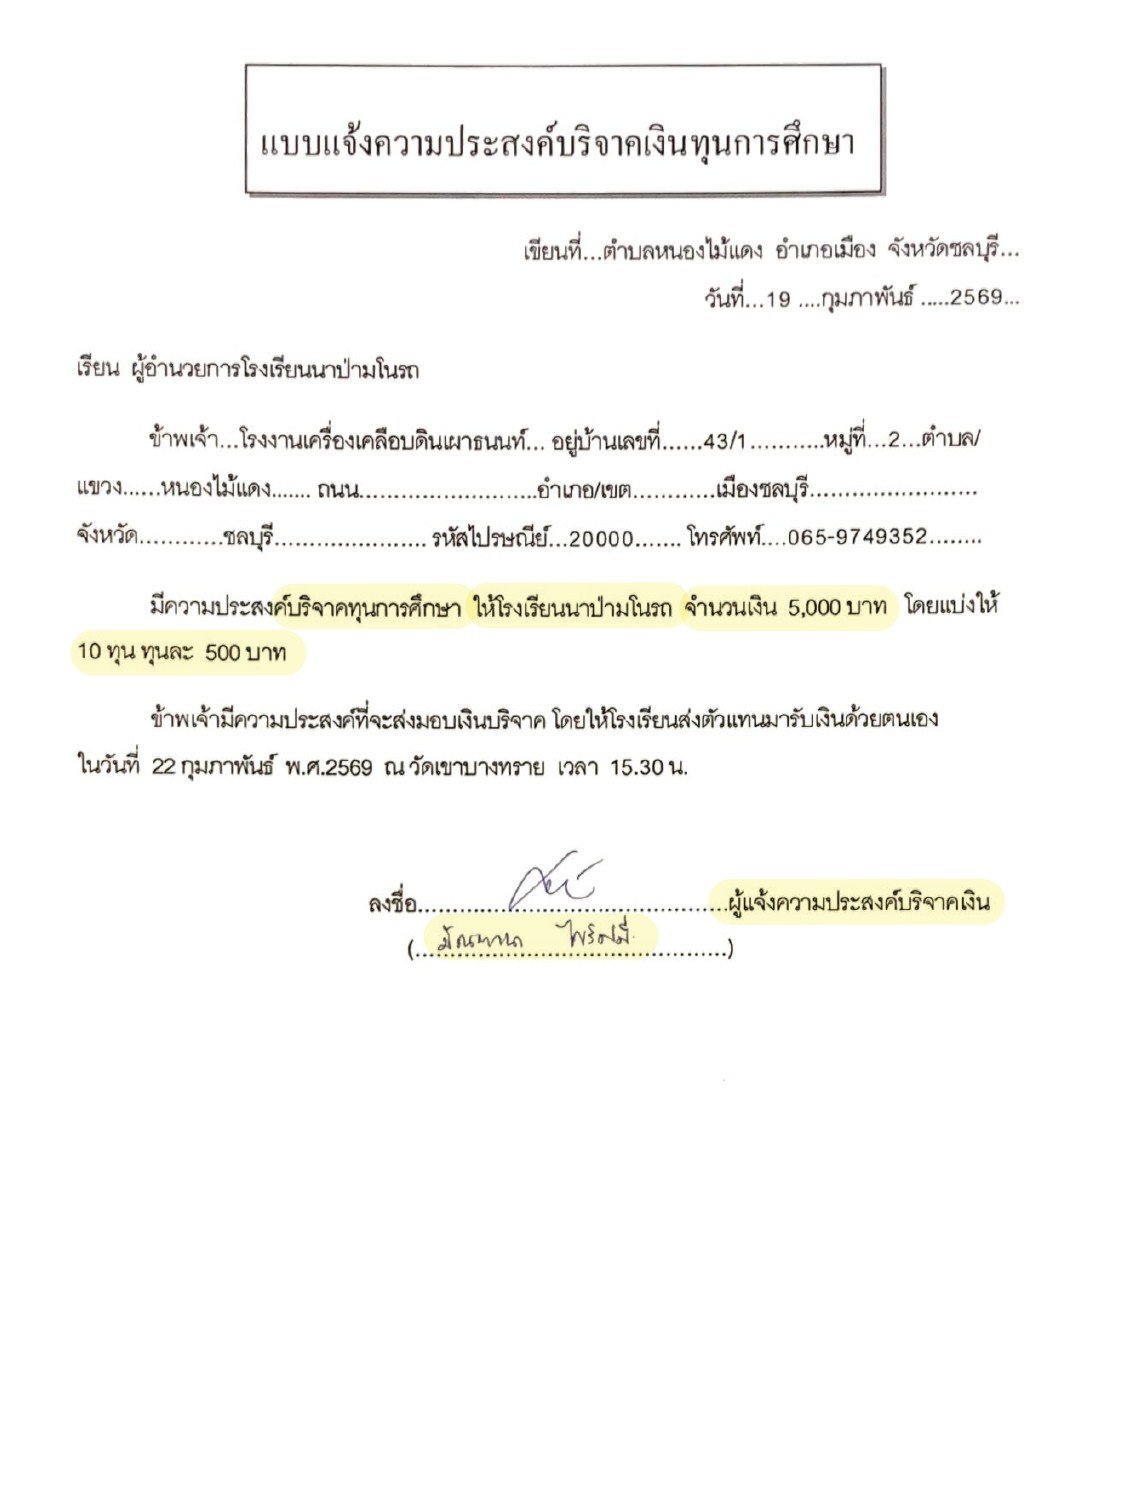 แบบแจ้งความประสงค์บริจาคเงินทุนการศึกษา
เขียนที่...ตำบลหนองไม้แดง อำเภอเมือง จังหวัดชลบุรี...
วันที่...19 ....กุมภาพันธ์ .....2569...
เรียน ผู้อำนวยการโรงเรียนนาป่ามโนรถ
ข้าพเจ้า...โรงงานเครื่องเคลือบดินเผาธนนท์... อยู่บ้านเลขที่......43/1...........หมู่ที่...2...ตำบล/
แขวง......หนองไม้แดง....... ถนน..........................อำเภอ/เขต............เมืองชลบุรี........................
จังหวัด............ชลบุรี...................... รหัสไปรษณีย์...20000....... โทรศัพท์....065-9749352........
มีความประสงค์บริจาคทุนการศึกษา ให้โรงเรียนนาป่ามโนรถ จำนวนเงิน 5,000 บาท โดยแบ่งให้
10 ทุน ทุนละ 500 บาท
ข้าพเจ้ามีความประสงค์ที่จะส่งมอบเงินบริจาค โดยให้โรงเรียนส่งตัวแทนมารับเงินด้วยตนเอง
ในวันที่ 22 กุมภาพันธ์ พ.ศ.2569 ณ วัดเขาบางทราย เวลา 15.30 น.
ลงชื่อ.............................................ผู้แจ้งความประสงค์บริจาคเงิน
(.............................................)